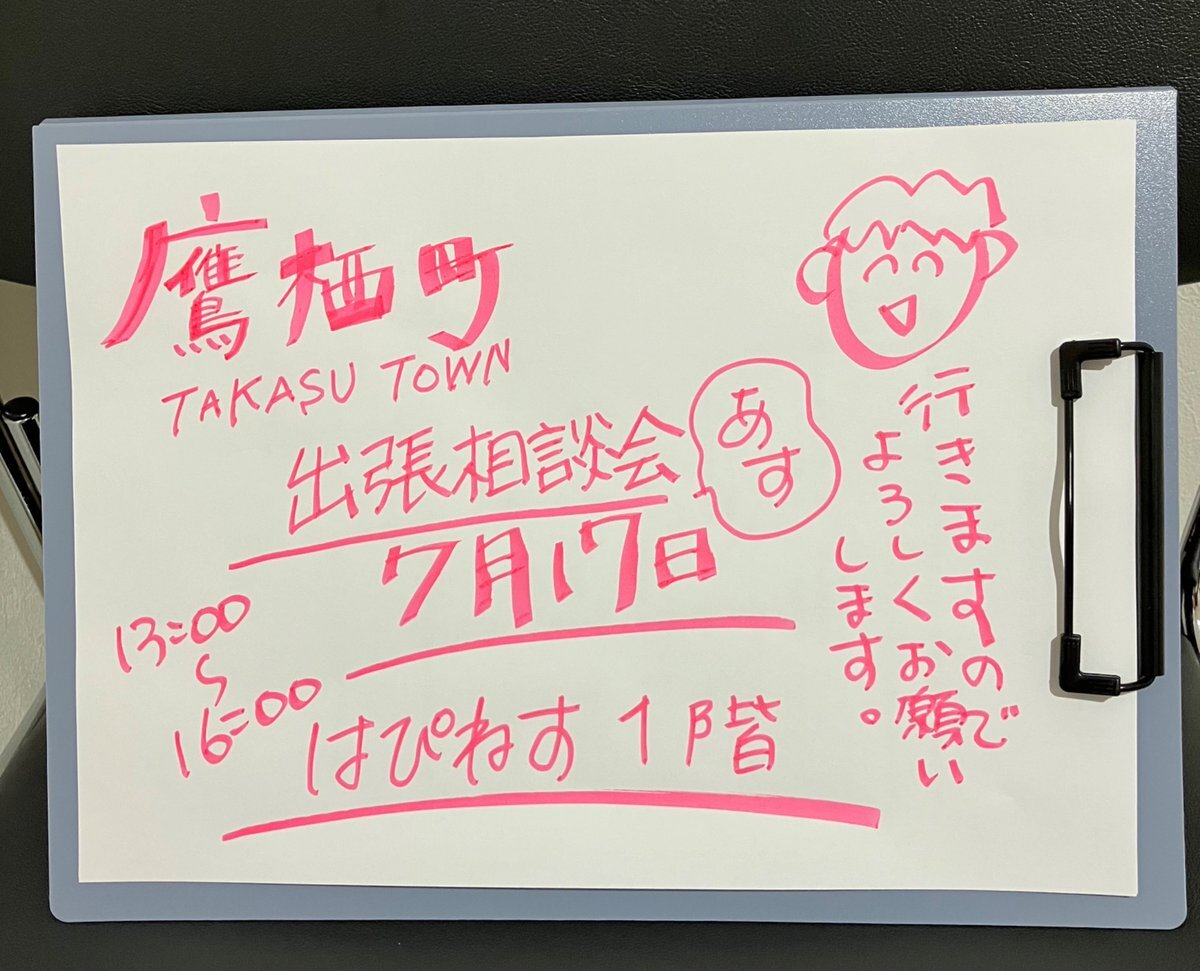 鷹栖町
TAKASU TOWN
出張相談会
あす
7月17日
13:00
〜
16:00
はぴねす 1階
行きますので
よろしくお願い
します。